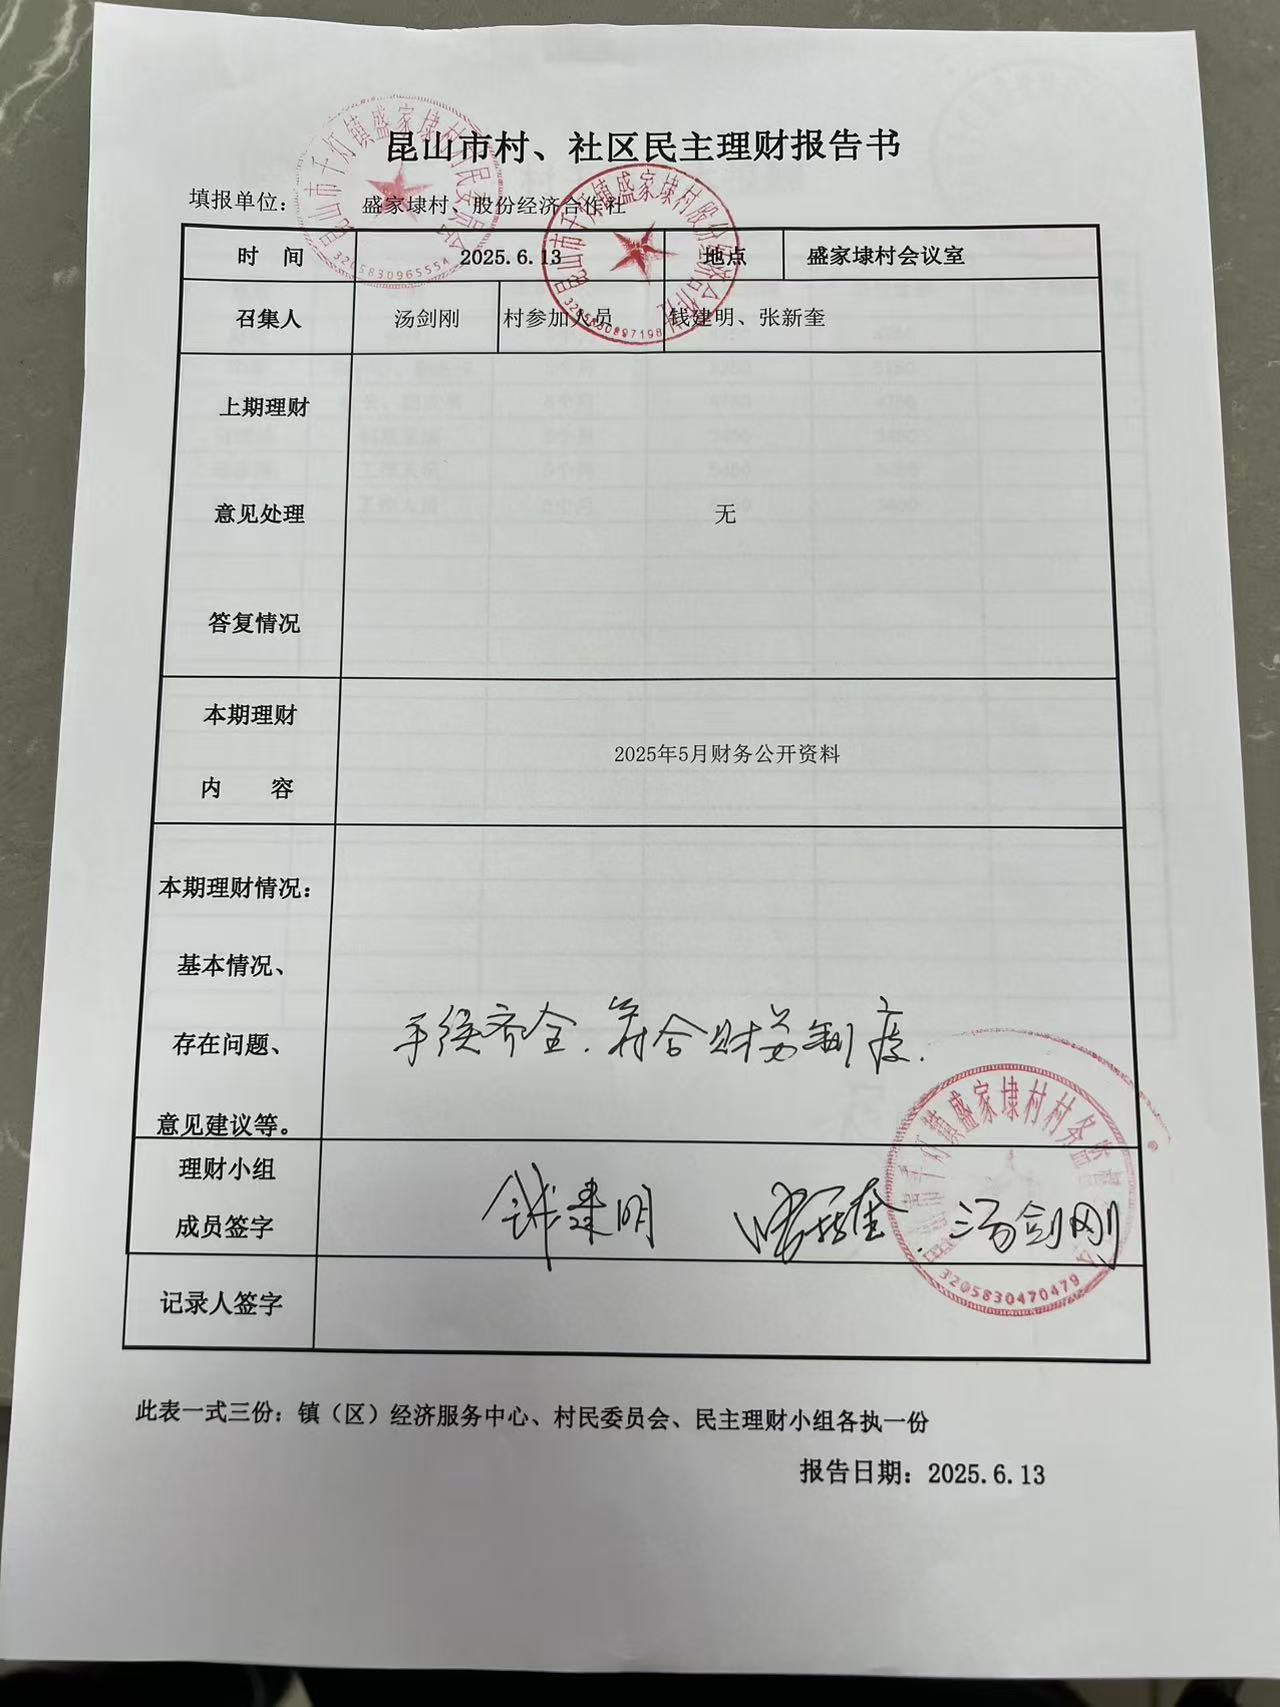 昆山市村、社区民主理财报告书
填报单位： 盛家埭村、股份经济合作社
时 间 2025.6.13 地点 盛家埭村会议室
召集人 汤剑刚 村参加人员 钱建明、张新奎
上期理财
意见处理 无
答复情况
本期理财
2025年5月财务公开资料
内 容
本期理财情况：
基本情况、
存在问题、 手续齐全.符合财务制度.
意见建议等。
理财小组
成员签字 钱建明 张新奎 汤剑刚
记录人签字
此表一式三份：镇（区）经济服务中心、村民委员会、民主理财小组各执一份
报告日期：2025.6.13
昆山市千灯镇盛家埭村村民委员会
3205830965554
昆山市千灯镇盛家埭村股份经济合作社
3205830897198
昆山市千灯镇盛家埭村村务监
3205830470479